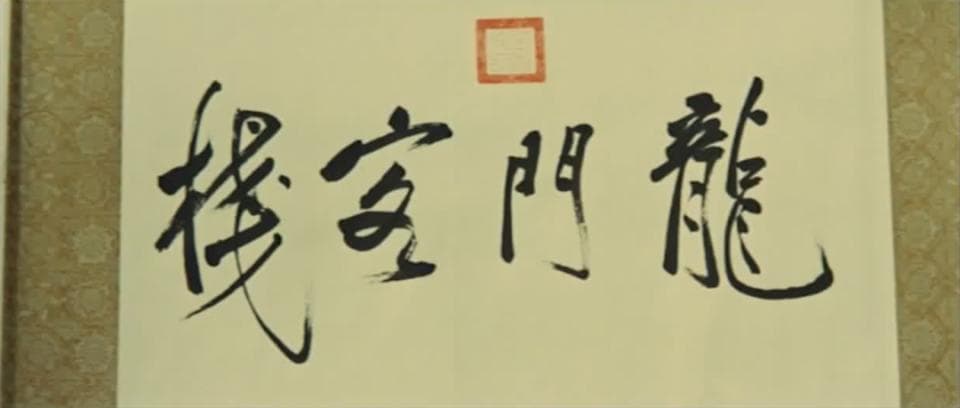 龍門客棧